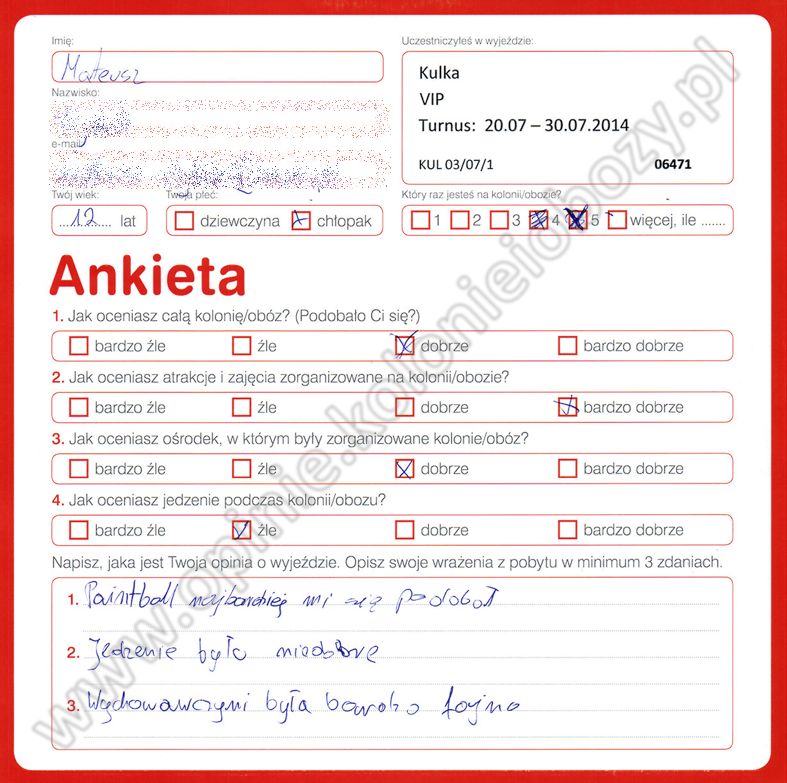 Imię:
Mateusz
Uczestniczyłeś w wyjeździe:
Kulka
VIP
Turnus: 20.07 – 30.07.2014
KUL 03/07/1 06471
Nazwisko:
e-mail
Twój wiek:
....12.... lat
Twoja płeć:
dziewczyna chłopak
Który raz jesteś na kolonii/obozie?
1 2 3 4 5 więcej, ile .......
Ankieta
1. Jak oceniasz całą kolonię/obóz? (Podobało Ci się?)
bardzo źle źle dobrze bardzo dobrze
2. Jak oceniasz atrakcje i zajęcia zorganizowane na kolonii/obozie?
bardzo źle źle dobrze bardzo dobrze
3. Jak oceniasz ośrodek, w którym były zorganizowane kolonie/obóz?
bardzo źle źle dobrze bardzo dobrze
4. Jak oceniasz jedzenie podczas kolonii/obozu?
bardzo źle źle dobrze bardzo dobrze
Napisz, jaka jest Twoja opinia o wyjeździe. Opisz swoje wrażenia z pobytu w minimum 3 zdaniach.
1. Paintball najbardziej mi się podobał
2. Jedzenie było niedobre
3. Wychowawczyni była bardzo fajna
www.opinie.kolonieiobozy.pl